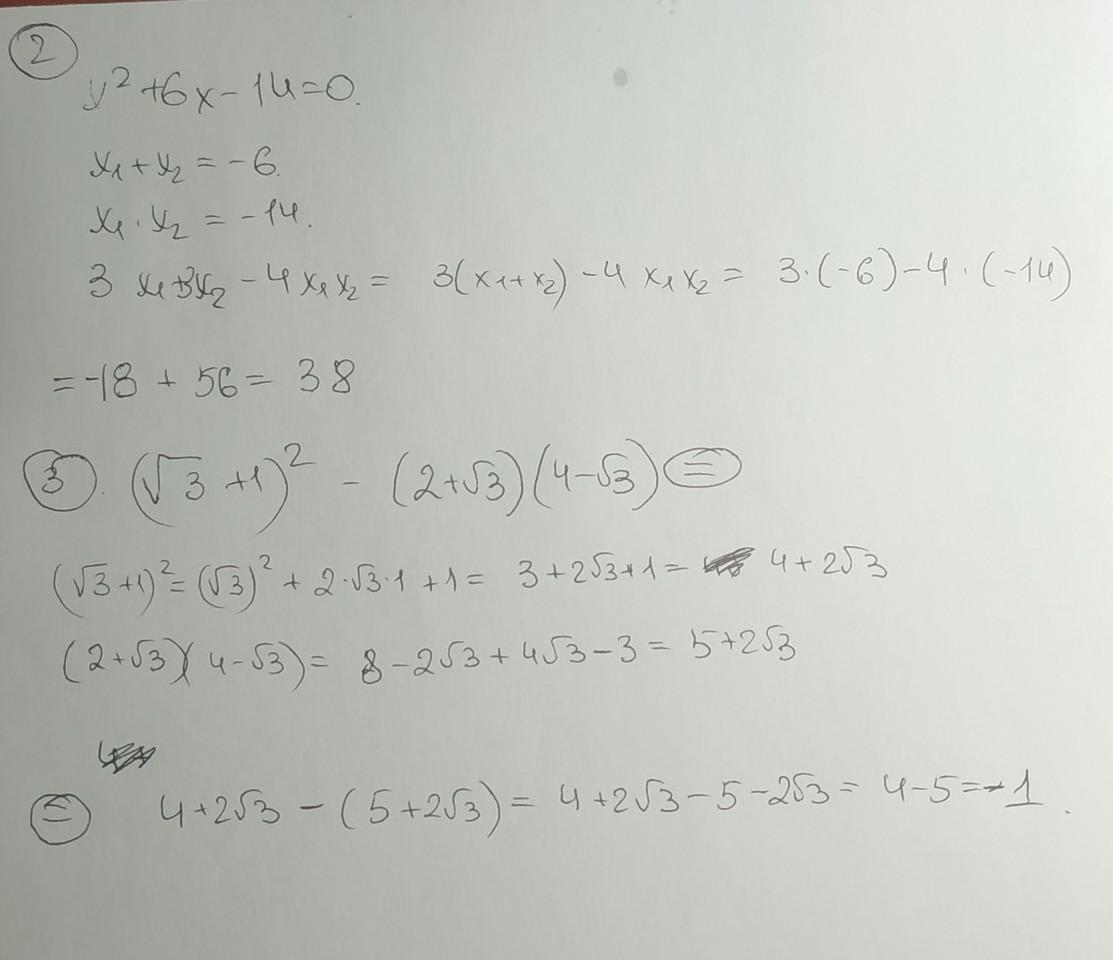 ②
x² + 6x - 14 = 0.
x₁ + x₂ = -6.
x₁ · x₂ = -14.
3 x₁ + 3x₂ - 4 x₁ x₂ = 3(x₁ + x₂) - 4 x₁ x₂ = 3·(-6) - 4·(-14)
= -18 + 56 = 38
③. (√3 + 1)² - (2+√3)(4-√3) ⊜
(√3 + 1)² = (√3)² + 2·√3·1 + 1 = 3 + 2√3 + 1 = 4 + 2√3
(2+√3)(4-√3) = 8 - 2√3 + 4√3 - 3 = 5 + 2√3
⊜ 4 + 2√3 - (5 + 2√3) = 4 + 2√3 - 5 - 2√3 = 4 - 5 = -1.